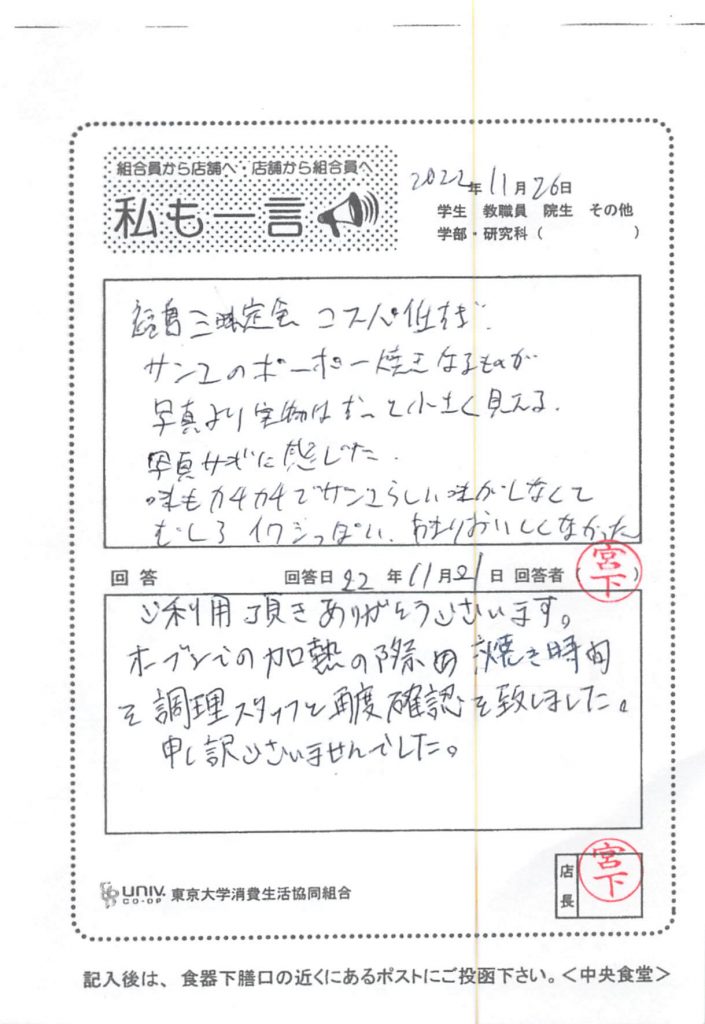 組合員から店舗へ・店舗から組合員へ
私も一言
2022年11月26日
学生 教職員 院生 その他
学部・研究科（ ）
福島三昧定食 コスパ低すぎ.
サンマのポーポー焼きなるものが
写真より実物はずっと小さく見える.
写真サギに感じた.
味もカチカチでサンマらしい味がしなくて
むしろイワシっぽい. あまりおいしくなかった
回答 回答日 22年11月21日 回答者（宮下）
ご利用頂きありがとうございます。
オーブンでの加熱の際の焼き時間
を調理スタッフと再度確認を致しました。
申し訳ございませんでした。
UNIV. CO-OP 東京大学消費生活協同組合
店長 宮下
記入後は、食器下膳口の近くにあるポストにご投函下さい。＜中央食堂＞